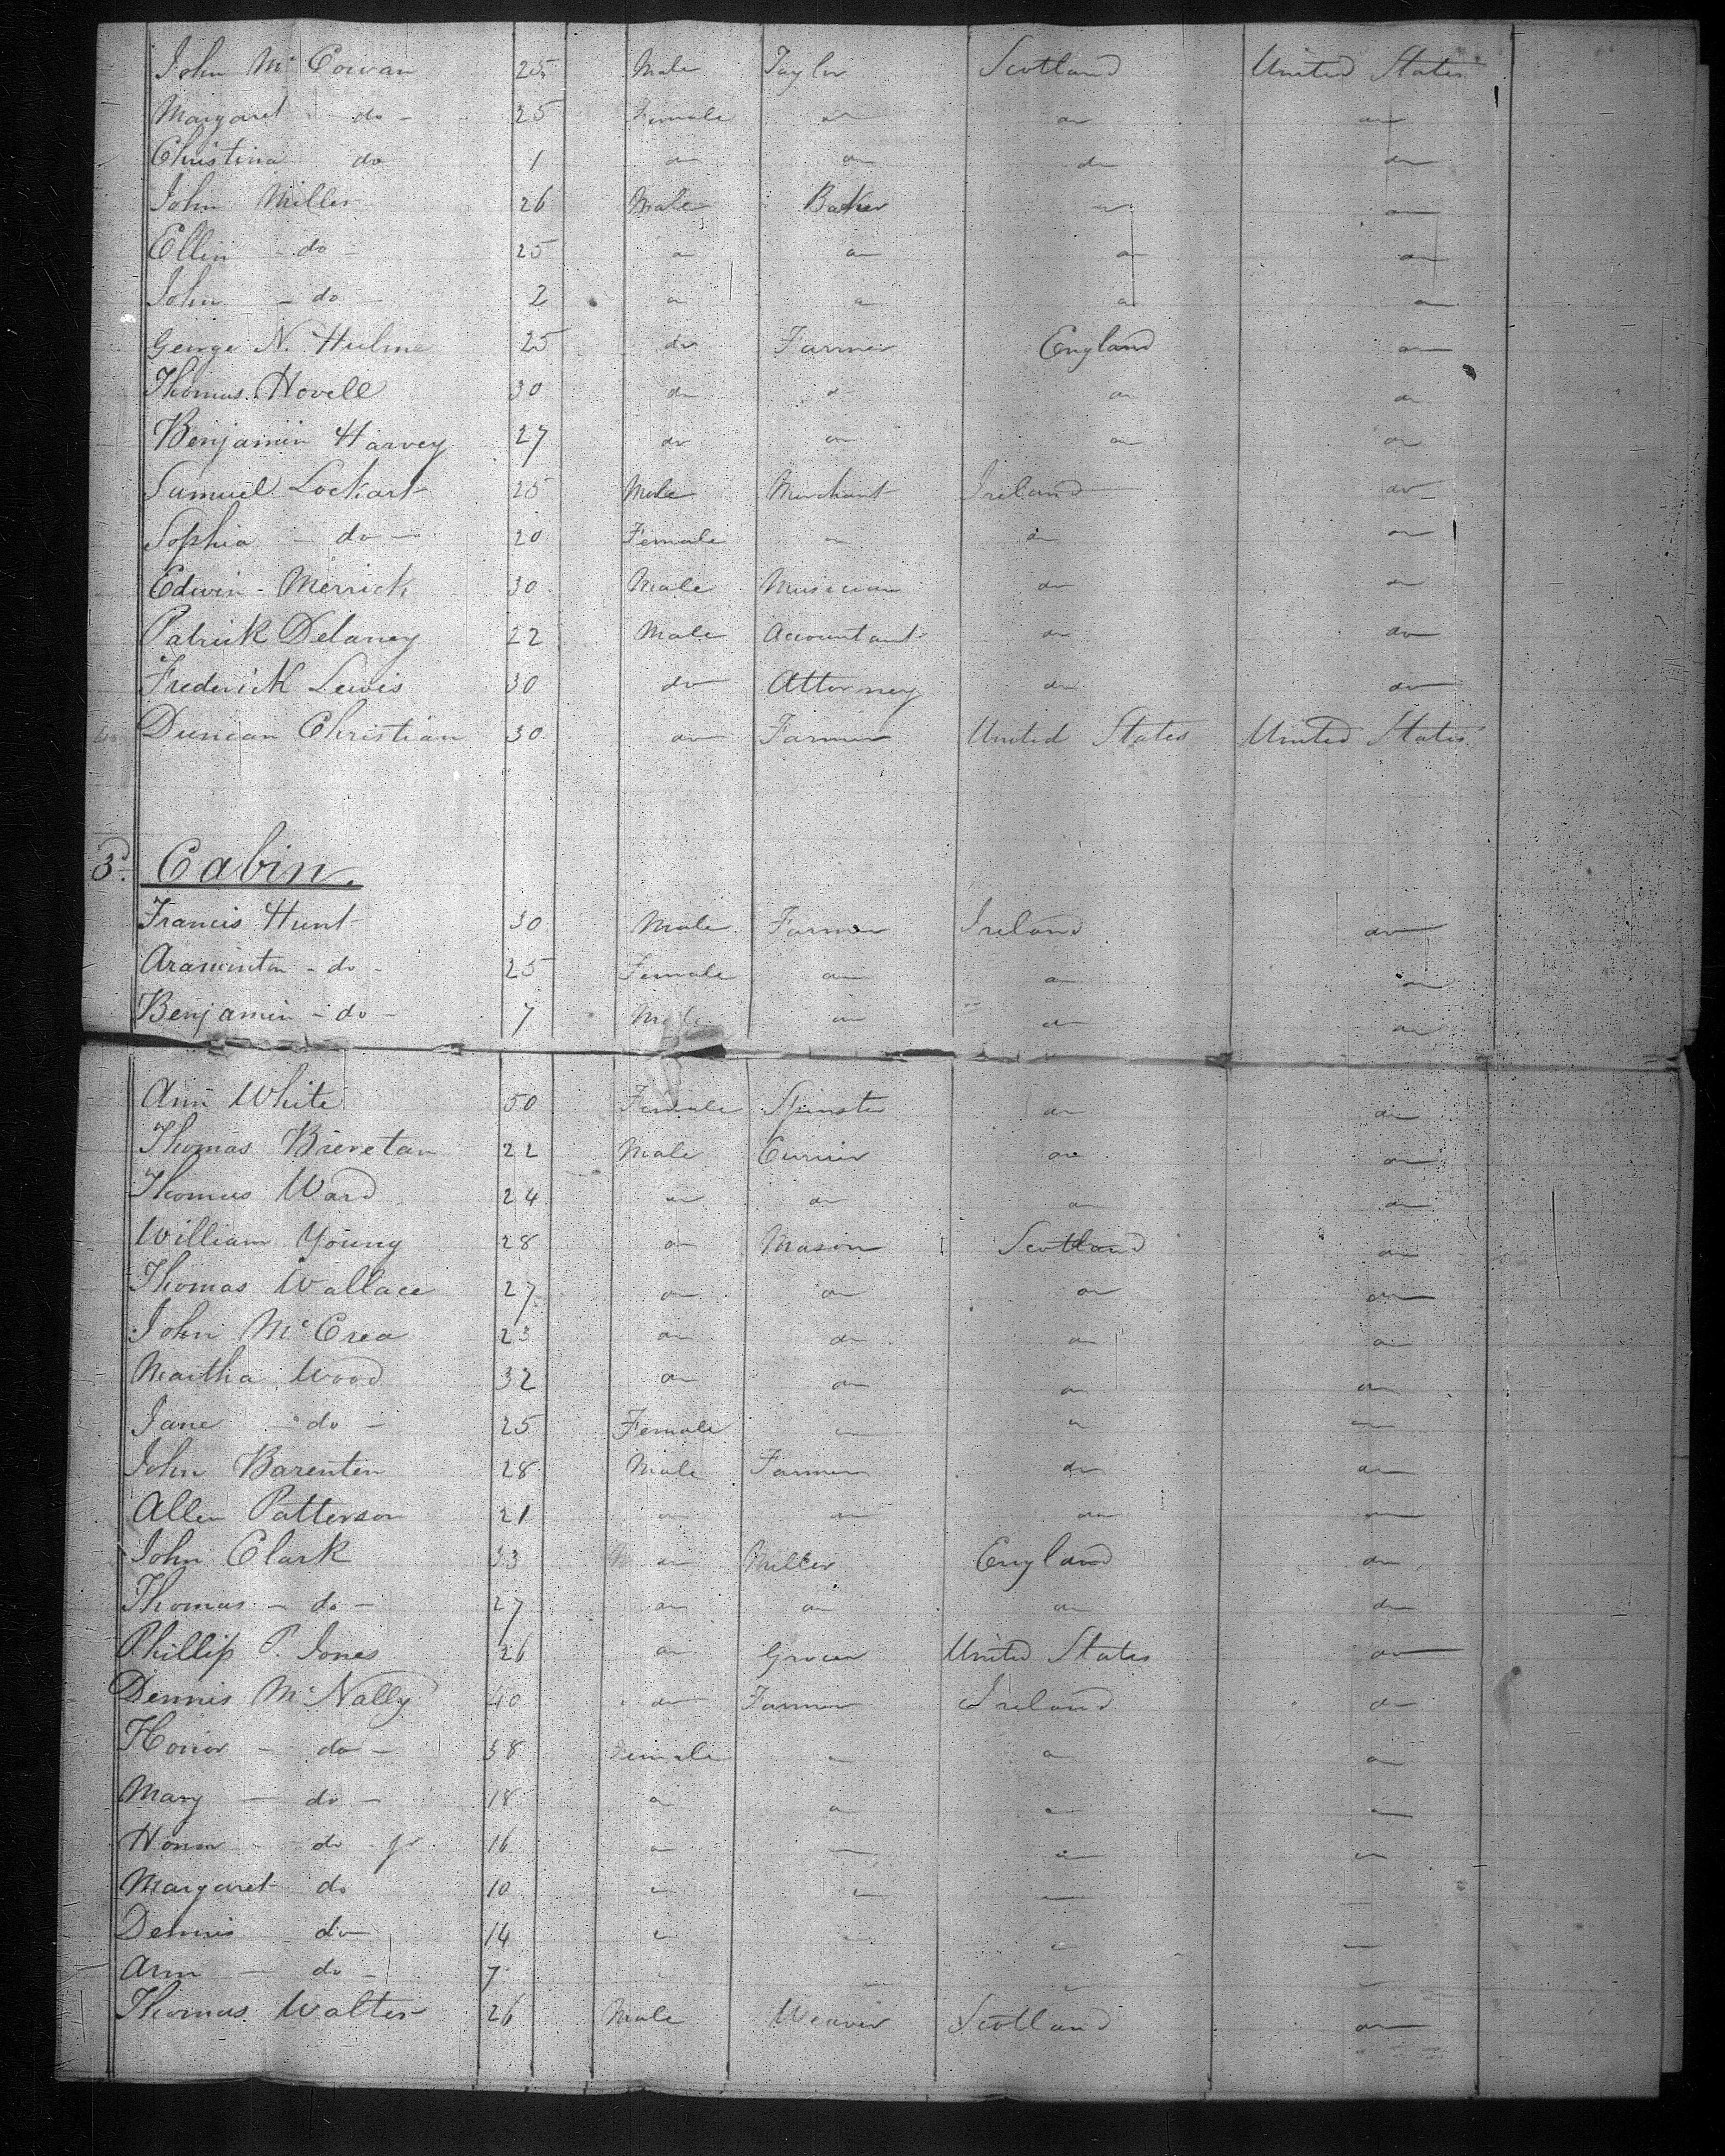 John Mc Cowan 25 Male Taylor Scotland United States
Margaret - do - 25 Female do do do
Christina do 1 do do do do
John Miller 26 Male Baker do do
Ellin - do - 25 do do do do
John - do - 2 do do do do
George N. Hulme 25 do Farmer England do
Thomas Hovell 30 do do do do
Benjamin Harvey 27 do do do do
Samuel Lockart 25 Male Merchant Ireland do
Sophia - do - 20 Female do do do
Edwin - Merrick 30 Male Musician do do
Patrick Delaney 22 Male Accountant do do
Frederick Lewis 30 do Attorney do do
Duncan Christian 30 do Farmer United States United States
3d. Cabin.
Francis Hunt 30 Male Farmer Ireland do
Araminta - do - 25 Female do do do
Benjamin - do - 7 Male do do do
Ann White 50 Female Spinster do do
Thomas Brevetan 22 Male Currier do do
Thomas Ward 24 do do do do
William Young 28 do Mason Scotland do
Thomas Wallace 27 do do do do
John Mc Crea 23 do do do do
Martha Wood 32 do do do do
Jane - do - 25 Female do do do
John Barenten 28 Male Farmer do do
Allen Patterson 21 do do do do
John Clark 33 do Miller England do
Thomas - do - 27 do do do do
Phillip P. Jones 26 do Grocer United States do
Dennis Mc Nally 40 do Farmer Ireland do
Honor - do - 38 Female do do do
Mary - do - 18 do do do do
Honor - do - jr 16 do do do do
Margaret do 10 do do do do
Dennis do 14 do do do do
Ann - do - 7 do do do
Thomas Walter 26 Male Weaver Scotland do